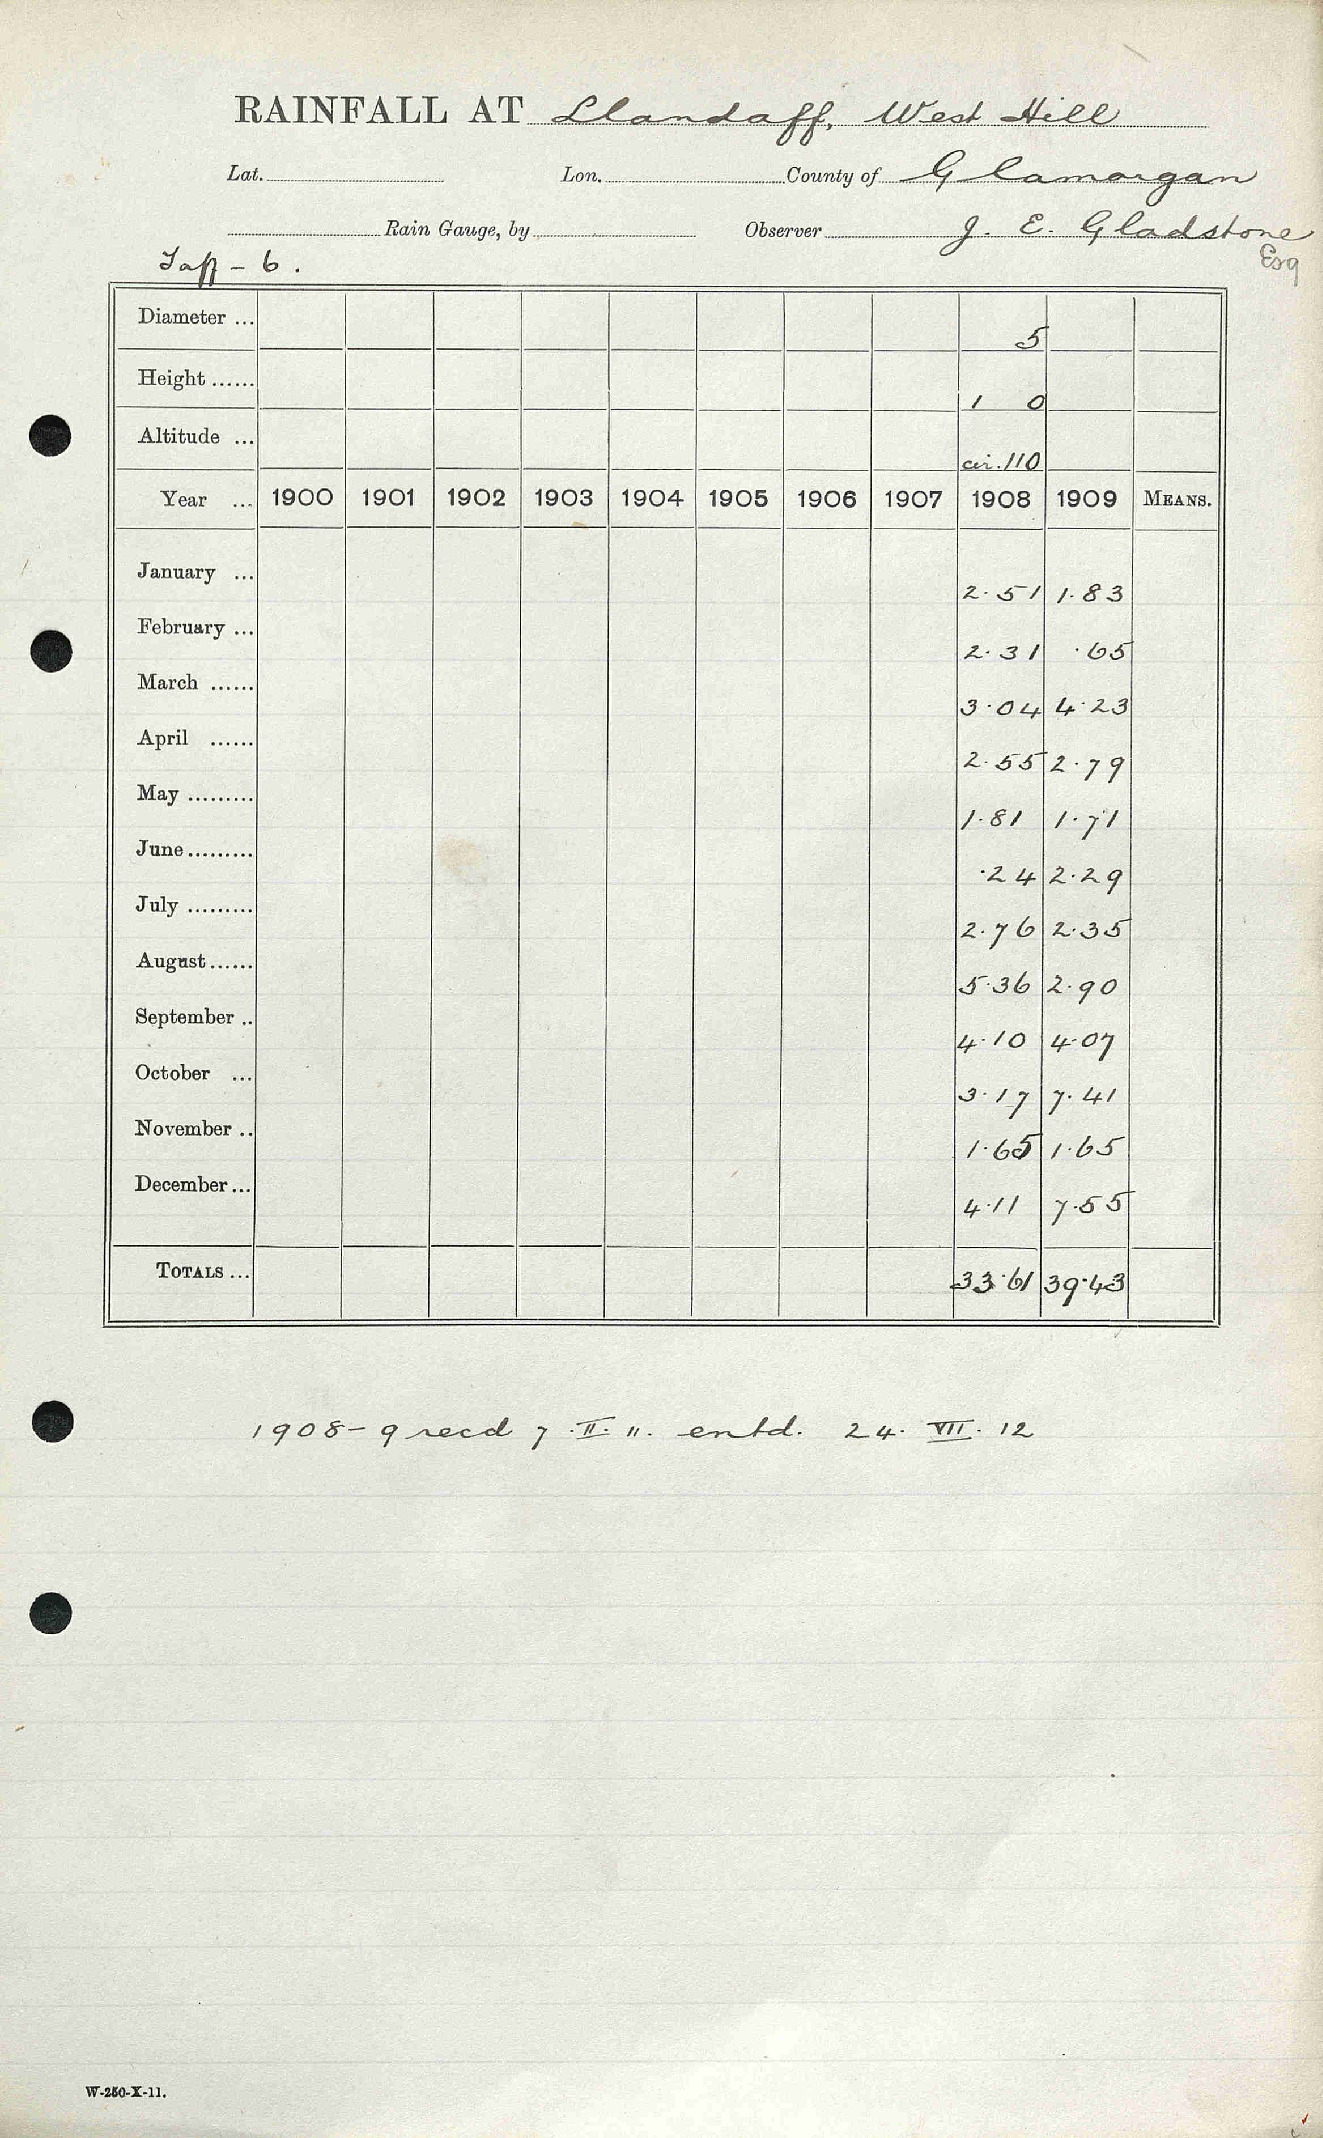 RAINFALL AT Llandaff, West Hill
Lat. Lon. County of Glamorgan
Rain Gauge, by Observer J. E. Gladstone Esq
Taff - 6.
Diameter ... 5
Height ...... 1 0
Altitude ... cir. 110
Year ... 1900 1901 1902 1903 1904 1905 1906 1907 1908 1909 MEANS.
January ... 2.51 1.83
February ... 2.31 .65
March ...... 3.04 4.23
April ...... 2.55 2.79
May ......... 1.81 1.71
June ......... .24 2.29
July ......... 2.76 2.35
August ...... 5.36 2.90
September .. 4.10 4.07
October ... 3.17 7.41
November .. 1.65 1.65
December ... 4.11 7.55
TOTALS ... 33.61 39.43
1908-9 recd 7.II.11. entd. 24.VII.12
W-250-X-11.